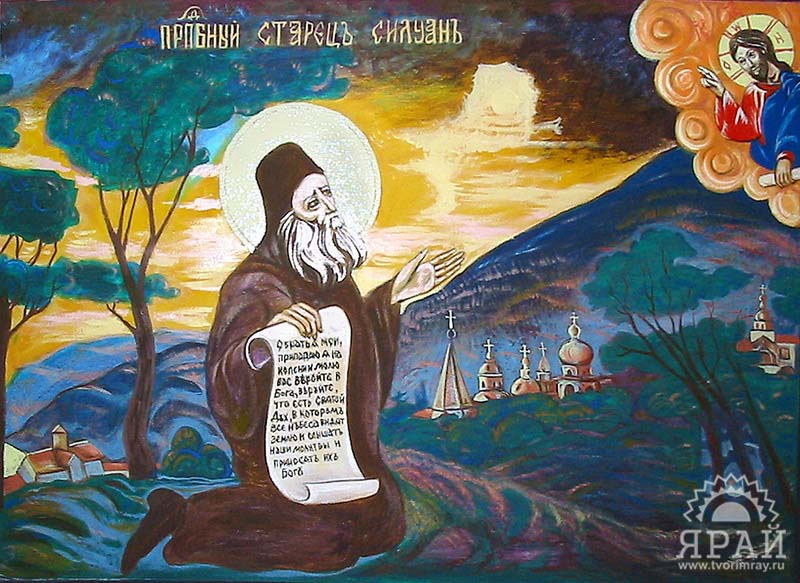 ПРПБНЫЙ СТАРЕЦЪ СИЛУАНЪ
О братья мои,
припадаю на
колени и молю
вас веройте в
Бога, веройте,
что есть Святой
Дух, в которомъ
все небеса видят
землю и слышатъ
наши молитвы и
приносятъ ихъ
Богу
ЯРАЙ
www.tvorimray.ru